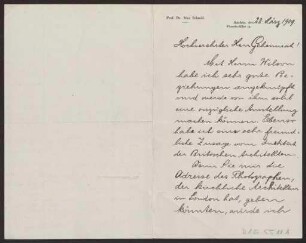 Prof. Dr. Max Schmid
28 März 1909
Hochverehrter Herr Geheimrat!
Mit Herrn Wilson
habe ich sehr gute Be-
ziehungen angeknüpft
und werde von ihm wohl
eine vorzügliche Ausstellung
machen können. Ebenso
habe ich eine sehr freund-
liche Zusage vom Institut
der Britischen Architekten.
Wenn Sie mir die
Adresse des Photographen,
der kirchliche Architektur
in London hat, geben
könnten, würde